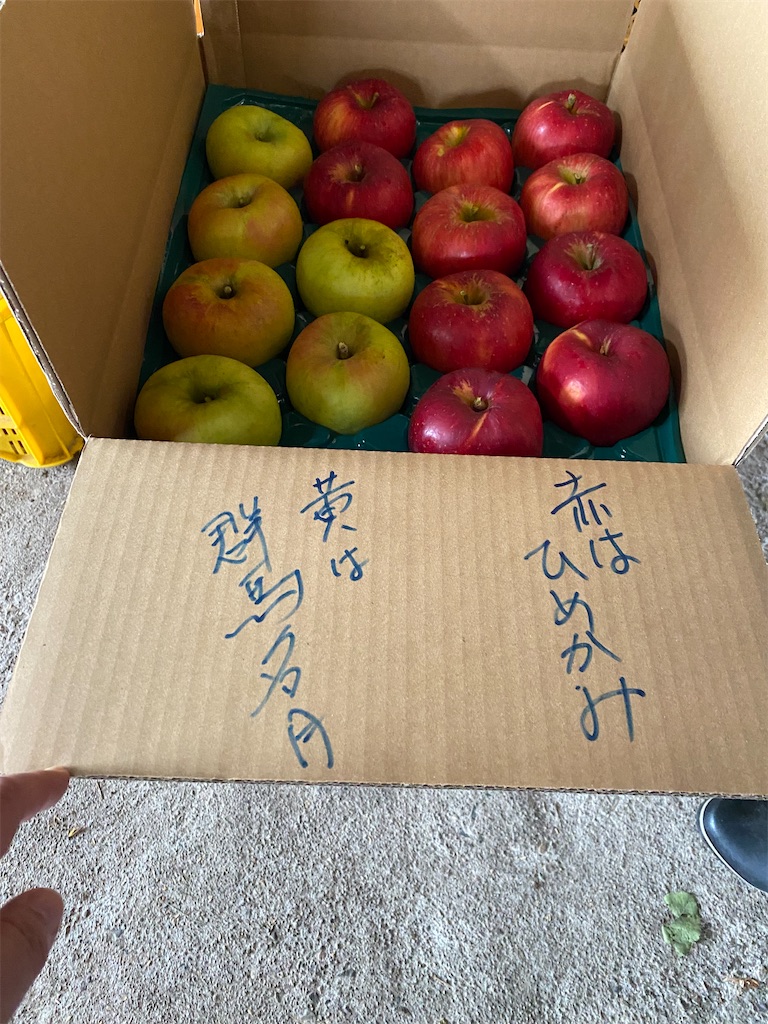 赤は
ひめかみ
黄は
群馬名月